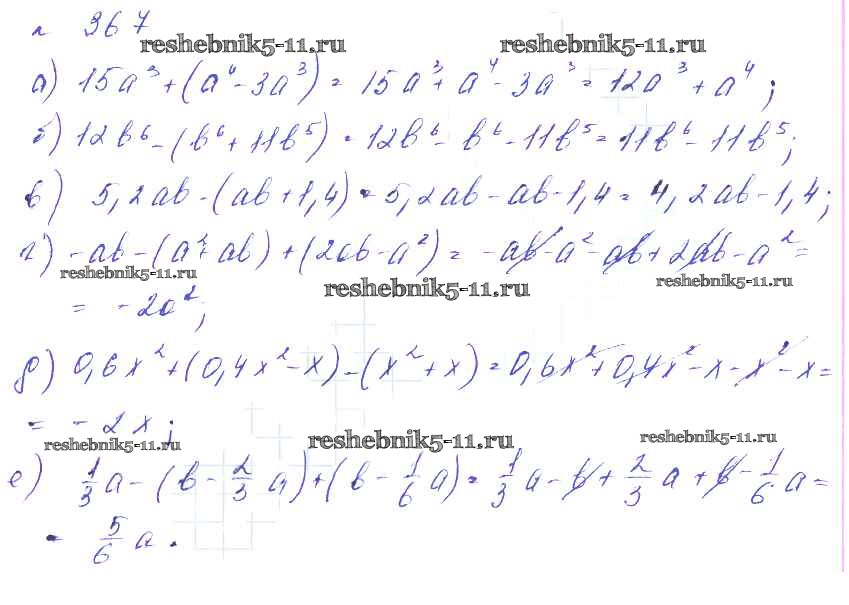 № 367
reshebnik5-11.ru reshebnik5-11.ru
а) 15a³ + (a⁴ - 3a³) = 15a³ + a⁴ - 3a³ = 12a³ + a⁴;
б) 12b⁶ - (b⁶ + 11b⁵) = 12b⁶ - b⁶ - 11b⁵ = 11b⁶ - 11b⁵;
в) 5,2ab - (ab + 1,4) = 5,2ab - ab - 1,4 = 4,2ab - 1,4;
г) -ab - (a² + ab) + (2ab - a²) = -ab - a² - ab + 2ab - a² =
reshebnik5-11.ru reshebnik5-11.ru reshebnik5-11.ru
= -2a²;
д) 0,6x² + (0,4x² - x) - (x² + x) = 0,6x² + 0,4x² - x - x² - x =
= -2x;
reshebnik5-11.ru reshebnik5-11.ru reshebnik5-11.ru
е) 1/3 a - (b - 2/3 a) + (b - 1/6 a) = 1/3 a - b + 2/3 a + b - 1/6 a =
= 5/6 a.